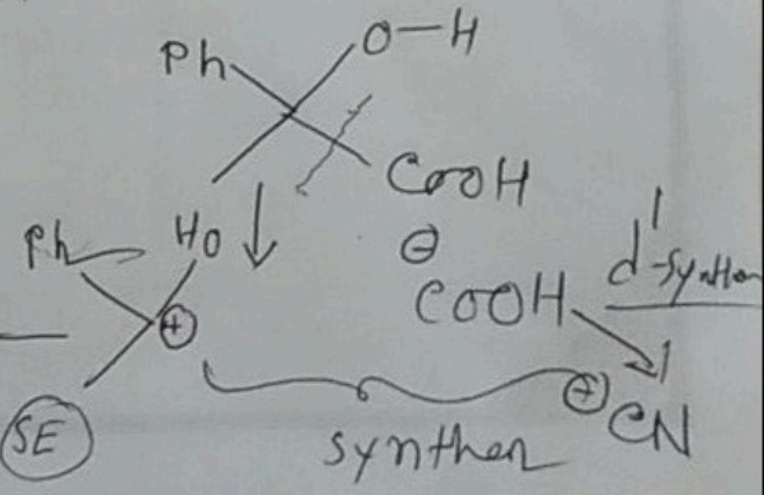 Ph O-H
COOH
Ph HO ⊖
⊕ COOH d¹-synthon
SE ⊕ CN
synthen